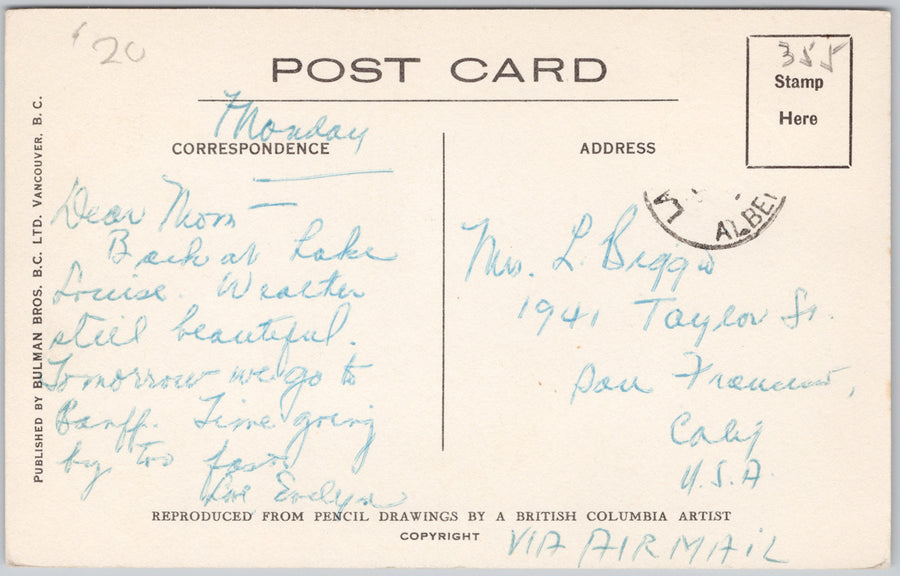 '20
POST CARD
355
Stamp
Here
Monday
CORRESPONDENCE
ADDRESS
LA
ALBE
Dear Mom —
Back at Lake
Louise. Weather
still beautiful.
Tomorrow we go to
Banff. Time going
by too fast.
Love Evelyn
Mrs. L. Biggio
1941 Taylor St.
San Francisco,
Calif
U.S.A.
VIA AIRMAIL
REPRODUCED FROM PENCIL DRAWINGS BY A BRITISH COLUMBIA ARTIST
COPYRIGHT
PUBLISHED BY BULMAN BROS. B.C. LTD. VANCOUVER, B.C.